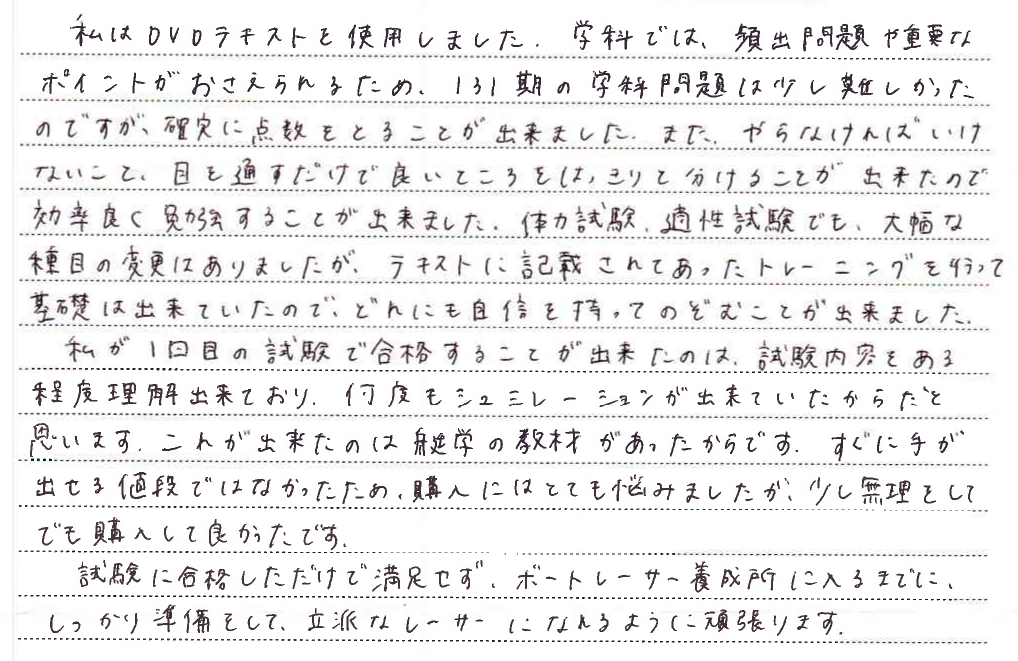 私はDVDテキストを使用しました。学科では、頻出問題や重要な
ポイントがおさえられるため、131期の学科問題は少し難しかった
のですが、確実に点数をとることが出来ました。また、やらなければいけ
ないこと、目を通すだけで良いところをはっきりと分けることが出来たので
効率良く勉強することが出来ました。体力試験、適性試験でも、大幅な
種目の変更はありましたが、テキストに記載されてあったトレーニングを行って
基礎は出来ていたので、どんにも自信を持ってのぞむことが出来ました。
私が1回目の試験で合格することが出来たのは、試験内容をある
程度理解出来ており、何度もシュミレーションが出来ていたからだと
思います。これが出来たのは艇学の教材があったからです。すぐに手が
出せる値段ではなかったため、購入にはとても悩みましたが、少し無理をして
でも購入して良かったです。
試験に合格しただけで満足せず、ボートレーサー養成所に入るまでに、
しっかり準備をして、立派なレーサーになれるように頑張ります。